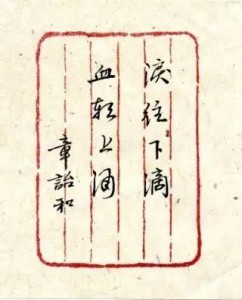 泪往下滴
血朝上涌
章詒和